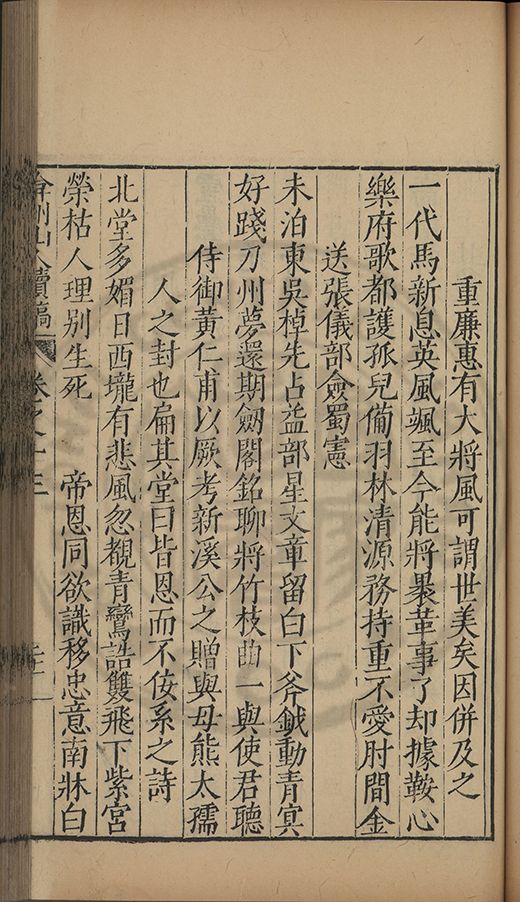 重廉惠有大將風可謂世美矣因併及之
一代馬新息英風颯至今能將暴革事了却據鞍心
樂府歌都護孤兒備羽林清源務持重不愛肘間金
送張儀部僉蜀憲
未泊東吳棹先占益部星文章留白下斧鉞動青冥
好踐刀州夢還期劒閣銘聊將竹枝曲一與使君聽
侍御黃仁甫以厥考新溪公之贈與母熊太孺
人之封也扁其堂曰皆恩而不佞系之詩
北堂多媚日西壠有悲風忽覩青鸞誥雙飛下紫宮
榮枯人理別生死 帝恩同欲識移忠意南牀白
弇州山人續稿 卷之十三